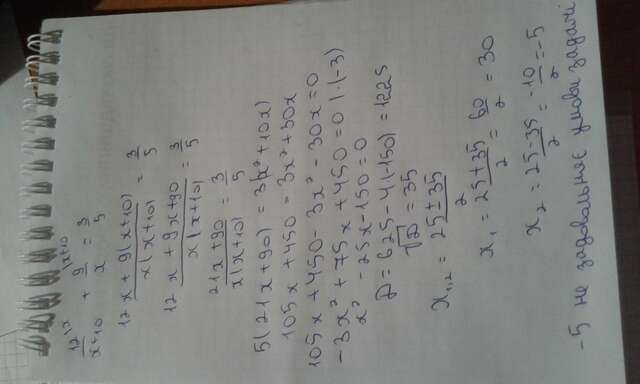 12^{/x}/(x+10) + 9^{/x+10}/x = 3/5
(12x + 9(x+10))/(x(x+10)) = 3/5
(12x + 9x + 90)/(x(x+10)) = 3/5
(21x + 90)/(x(x+10)) = 3/5
5(21x + 90) = 3(x² + 10x)
105x + 450 = 3x² + 30x
105x + 450 - 3x² - 30x = 0
-3x² + 75x + 450 = 0 | · (-3)
x² - 25x - 150 = 0
D = 625 - 4(-150) = 1225
√D = 35
x₁,₂ = (25 ± 35)/2
x₁ = (25 + 35)/2 = 60/2 = 30
x₂ = (25 - 35)/2 = -10/2 = -5
-5 не задовольняє умови задачі